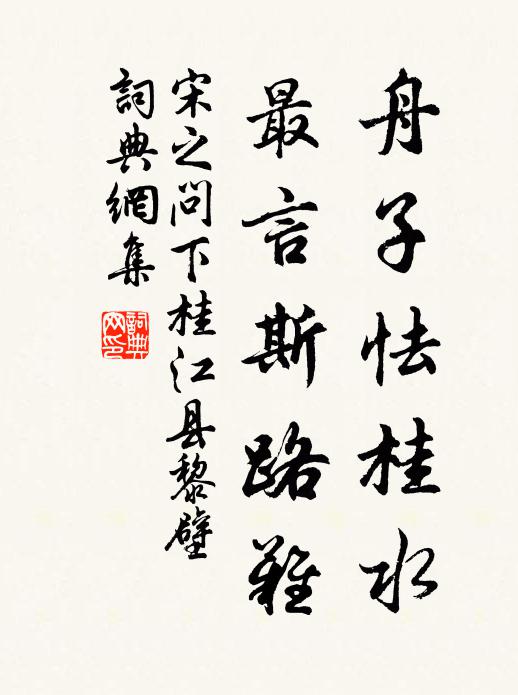 舟子怯桂水
最言斯路難
宋之问下桂江县黎壁
詞典網集
詞典
网印